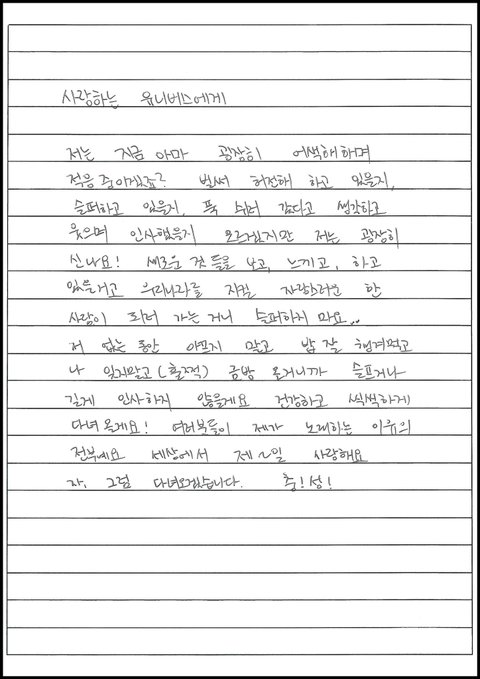 사랑하는 유니버스에게
저는 지금 아마 굉장히 어색해하며
적응 중이겠죠? 벌써 허전해 하고 있을지,
슬퍼하고 있을지, 푹 쉬러 갔다고 생각하고
웃으며 인사했을지 모르겠지만 저는 굉장히
신나요! 새로운 것들을 보고, 느끼고, 하고
있을거고 우리나라를 지킬 자랑스러운 한
사람이 되러 가는거니 슬퍼하지 마요..
저 없는 동안 아프지 말고 밥 잘 챙겨먹고
나 잊지말고(훌쩍) 금방 올거니까 슬프거나
길게 인사하지 않을게요 건강하고 씩씩하게
다녀올게요! 여러분들이 제가 노래하는 이유의
전부예요 세상에서 제~일 사랑해요
자, 그럼 다녀오겠습니다. 충!성!